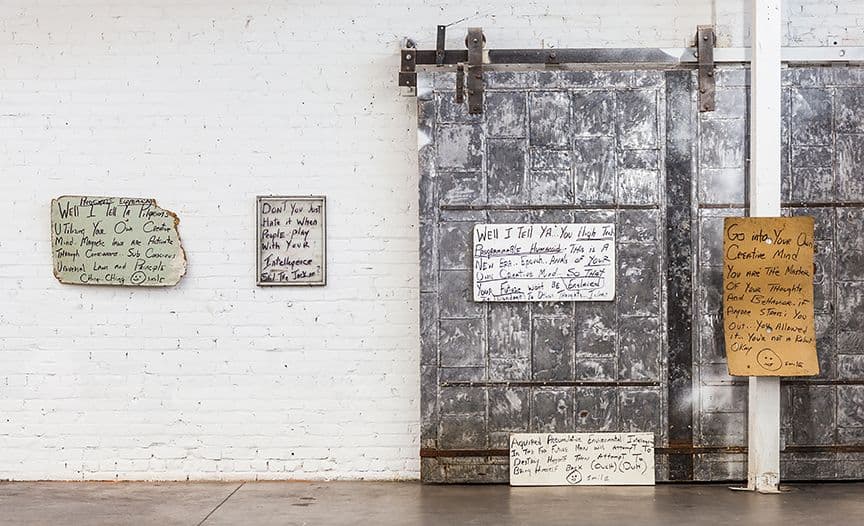 Well I Tell Ya
Utilizing Your Own Creative
Mind. Magnetic Laws are Activate
Through Conscious. Sub Conscious
Universal Laws and Principle
Ching-Ching Smile
Don't You Just
Hate it When
People Play
With Your
Intelligence
Said The Jackass
Well I Tell Ya. You High Tech
Programmable Humanoid. This is A
New Era.. Epoch.. Annals of Your
Own Creative Mind.. So That
Your Future Wont Be Enslaved
To
Go into Your Own
Creative Mind
You are The Master
Of Your Thoughts
And Behavior. if
Anyone Stress You
Out.. You Allowed
it.. You're not a Robot
Okay
Smile
Acquired Accumulative Environmental
In The Far Future Man will Attempt To
Destroy Himself Then Attempt To
Bring Himself Back (Ouch) (Ouch)
Smile